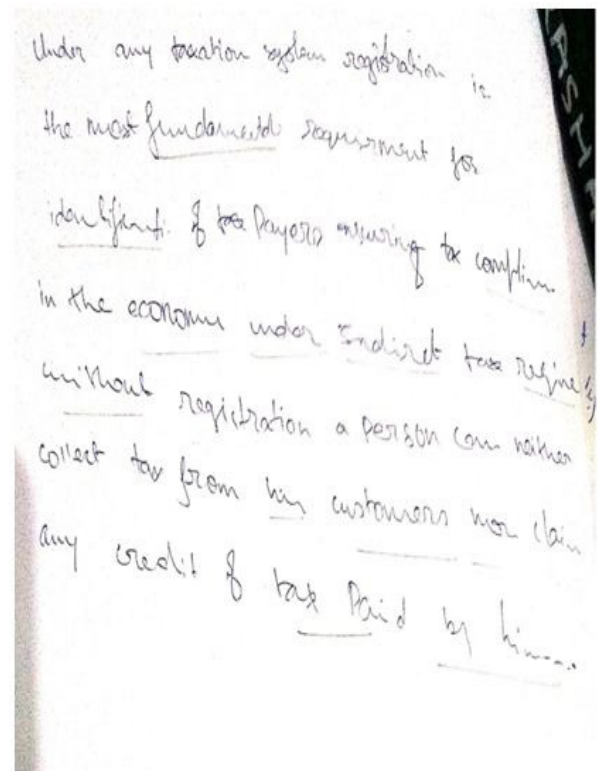 Under any taxation system registration is
the most fundamental requirment for
of tax Payers ensuring tax
in the economic under Indirect taxe regime
without registration a person can neither
collect tax from his customers nor claim
any credit of tax Paid by him